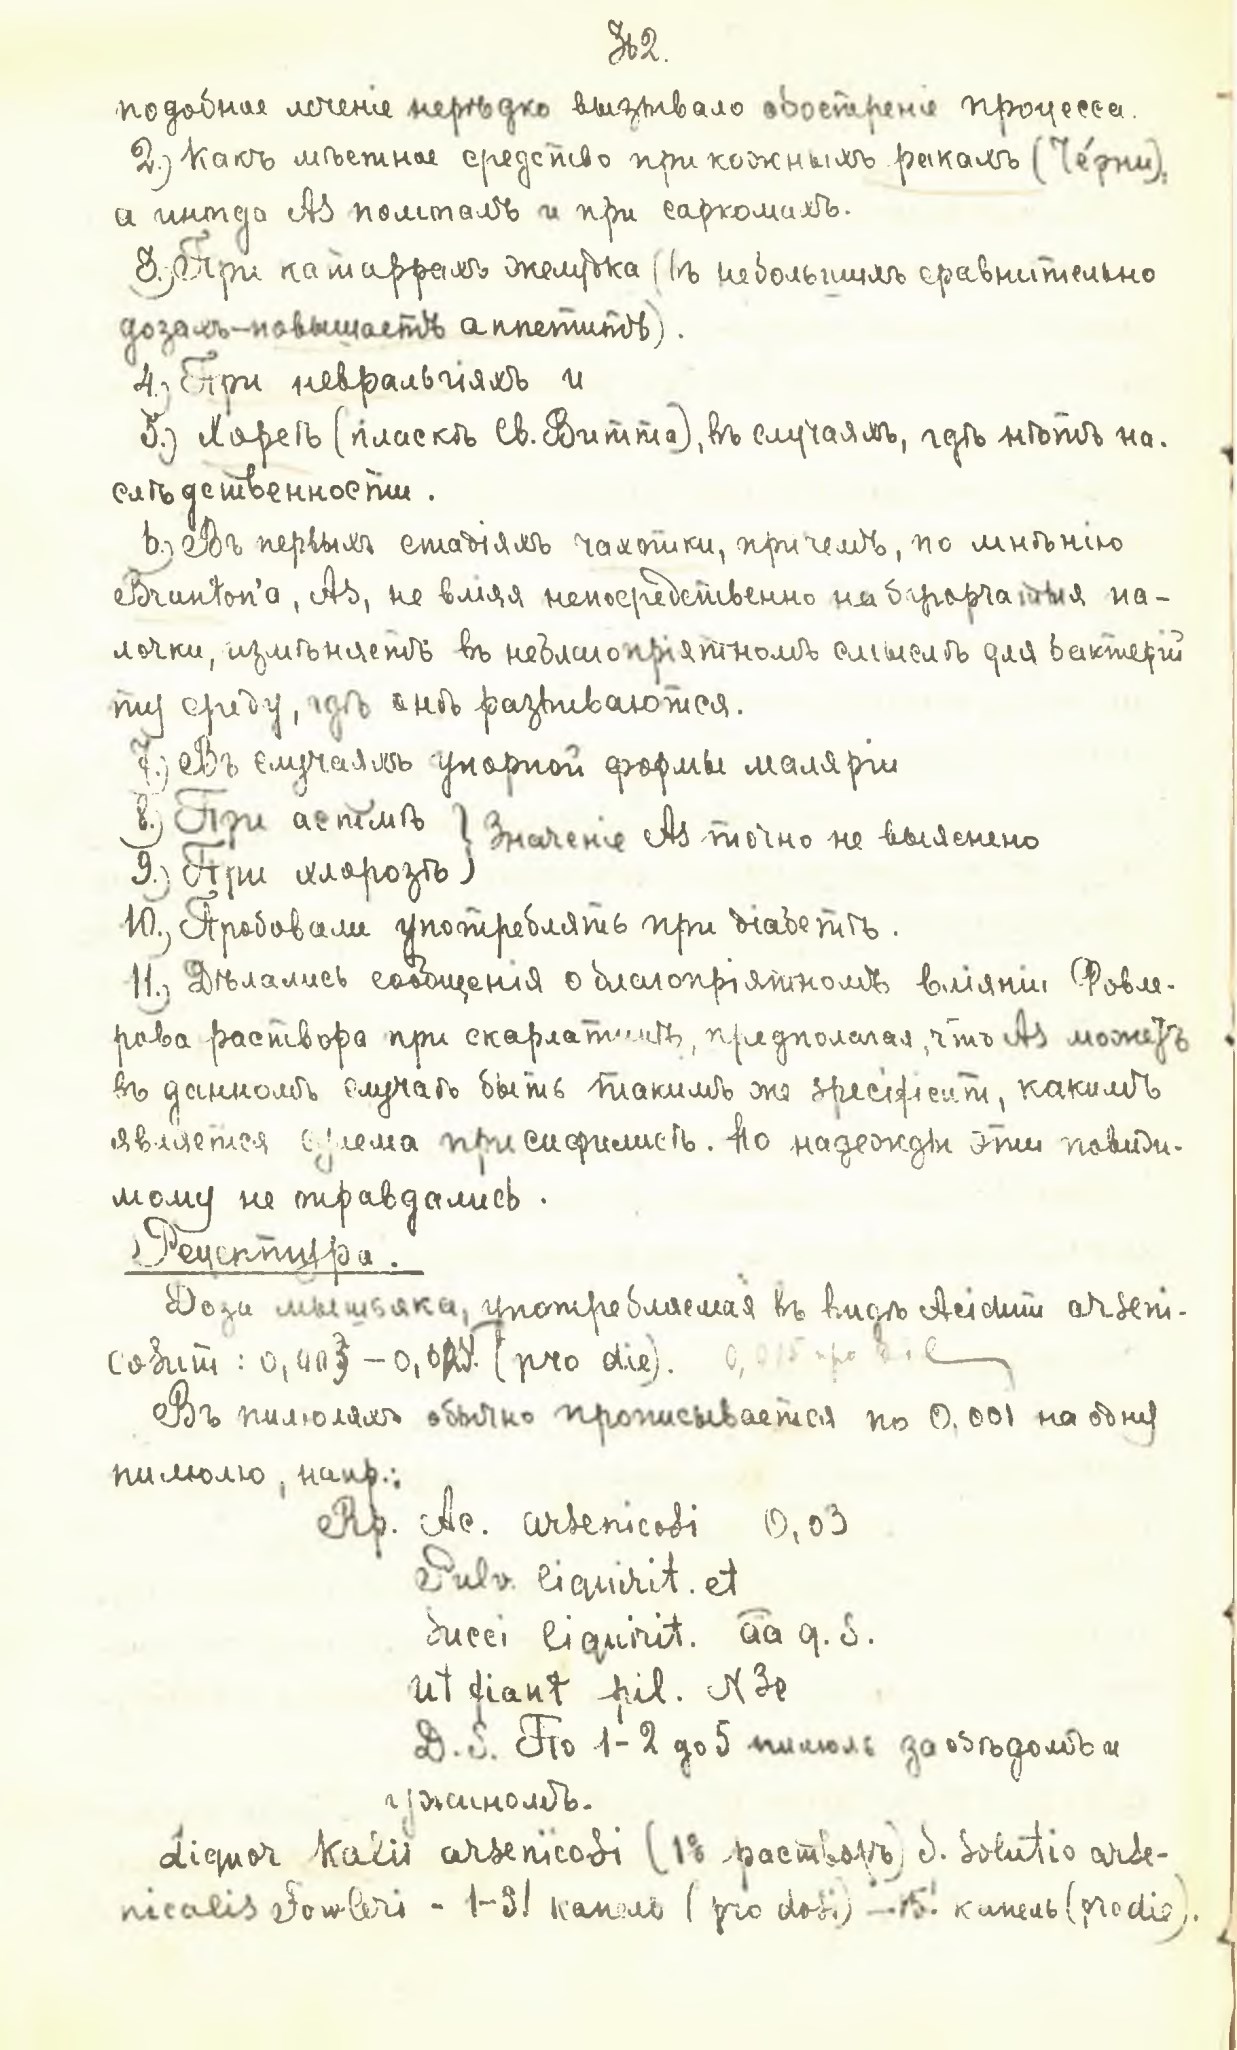 342.
подобное леченіе нерѣдко вызывало обостреніе процесса.
2.) Какъ мѣстное средство при кожныхъ ракахъ (Че́рни),
а иногда As помогалъ и при саркомахъ.
3.) При катаррахъ желудка (въ небольшихъ сравнительно
дозахъ–повышаетъ аппетитъ).
4.) При невральгіяхъ и
5.) Хореѣ (пляскѣ Св. Витта), въ случаяхъ, гдѣ нѣтъ на-
слѣдственности.
6.) Въ первыхъ стадіяхъ чахотки, причемъ, по мнѣнію
Brunton'а, As, не вліяя непосредственно на бугорчатыя па-
лочки, измѣняетъ въ неблагопріятномъ смыслѣ для бактерій
ту среду, гдѣ онѣ развиваются.
7.) Въ случаяхъ упорной формы маляріи
8.) При астмѣ } Значеніе As точно не выяснено
9.) При хлорозѣ
10.) Пробовали употреблять при діабетѣ.
11.) Дѣлались сообщенія о благопріятномъ вліяніи Фовле-
рова раствора при скарлатинѣ, предполагая, что As можетъ
въ данномъ случаѣ быть такимъ же specificum, какимъ
является сулема при сифилисѣ. Но надежды эти повиди-
мому не оправдались.
Рецептура.
Доза мышьяка, употребляемая въ видѣ Acidum arseni-
cosum : (pro die).
Въ пилюляхъ обычно прописывается по 0,001 на одну
пилюлю, напр.:
Rp. Ac. arsenicosi 0,03
Pulv. liquirit. et
Succi liquirit. āā q. s.
ut fiant pil. N 30
D. S. По 1–2 до 5 пилюль за обѣдомъ и
ужиномъ.
Liquor Kalii arsenicosi (1% растворъ) s. Solutio arse-
nicalis Fowleri - 1–3! капель (pro dosi) – 15! капель (pro die).